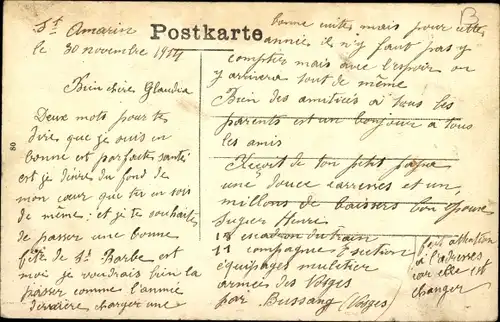 St Amarin
Postkarte
le 30 novembre 1914
Bien chère Glaudia
Deux mots pour te
dire que je suis en
bonne et parfaite santé
est je désire du fond de
mon cœur que tu en sois
de même: et je te souhaite
de passer une bonne
fête de St Barbe est
moi je voudrais bien la
passer comme l'année
dernière changer une
bonne cuites mais pour cette
année il n'y faut pas y
compter mais avec l'espoir on
y arrivera tout de même
Bien des amitiées à tous les
parents est un bonjour à tous
les amis
Reçoit de ton petit
une douce carresses et un
millons de baisers ton epoux
Henri
escadron du train
11 compagnie section
équipages muletier
armée des Vosges
par Bussang (Vosges)
fait attention
à l'adresses
car elle est
changer
80